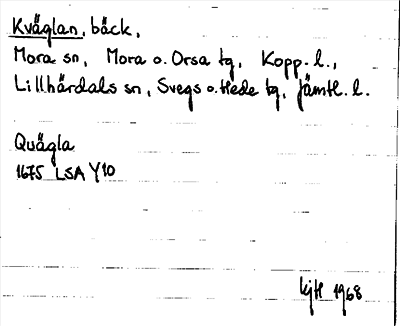 Kväglan, bäck,
Mora sn, Mora o. Orsa tg, Kopp. l.,
Lillhärdals sn, Svegs o. Hede tg, Jämtl. l.
Quägla
1675 LSA Y10
kjtl 1968